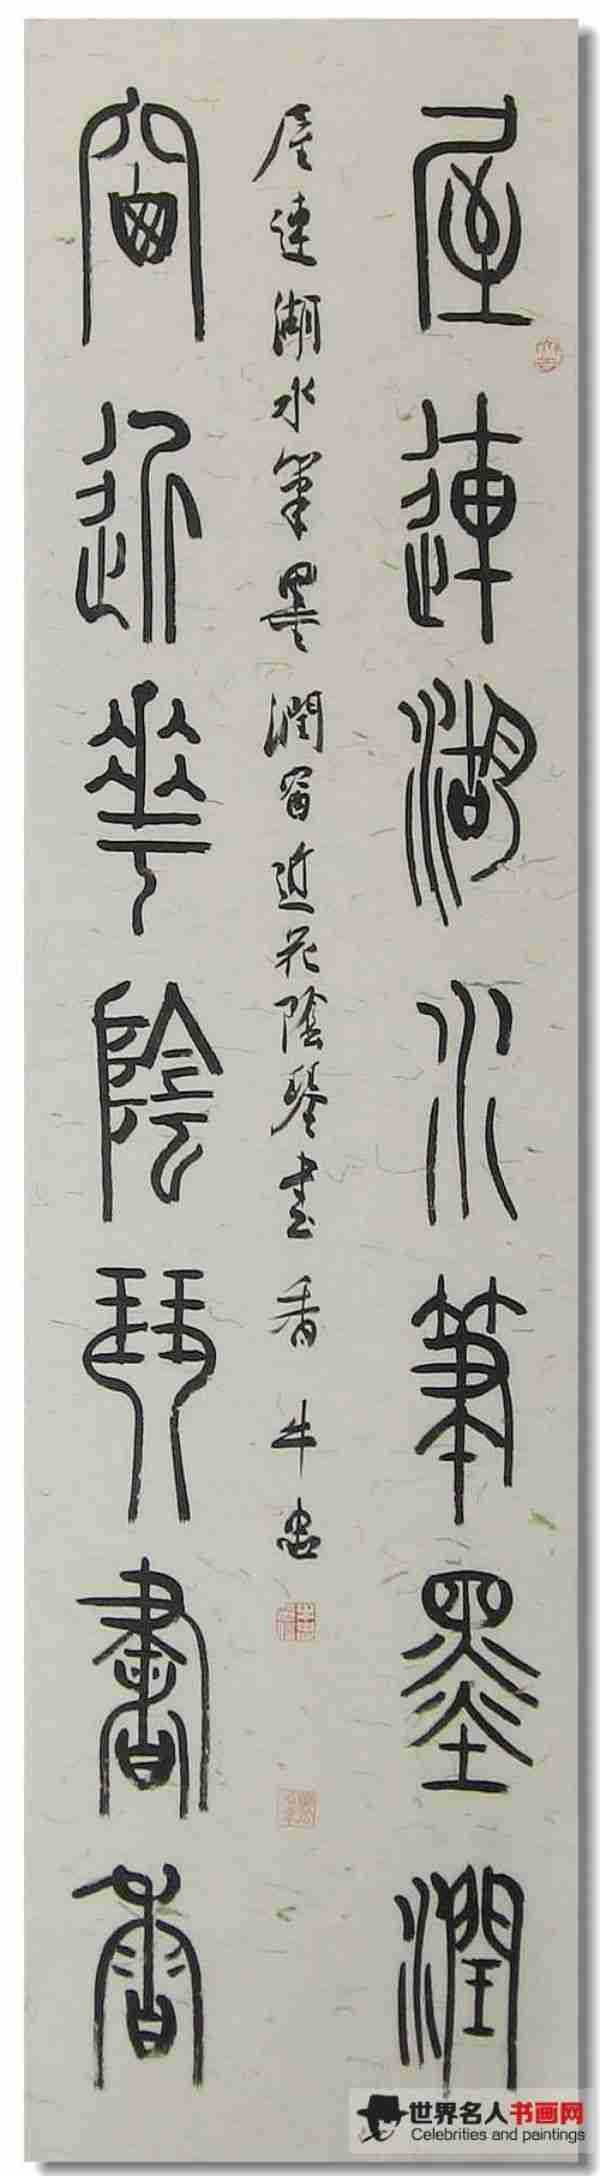 屋連湖水筆墨潤
屋連湖水筆墨潤窗近花陰琴書香
窗近華陰琴書香
世界名人书画网
Celebrities and paintings